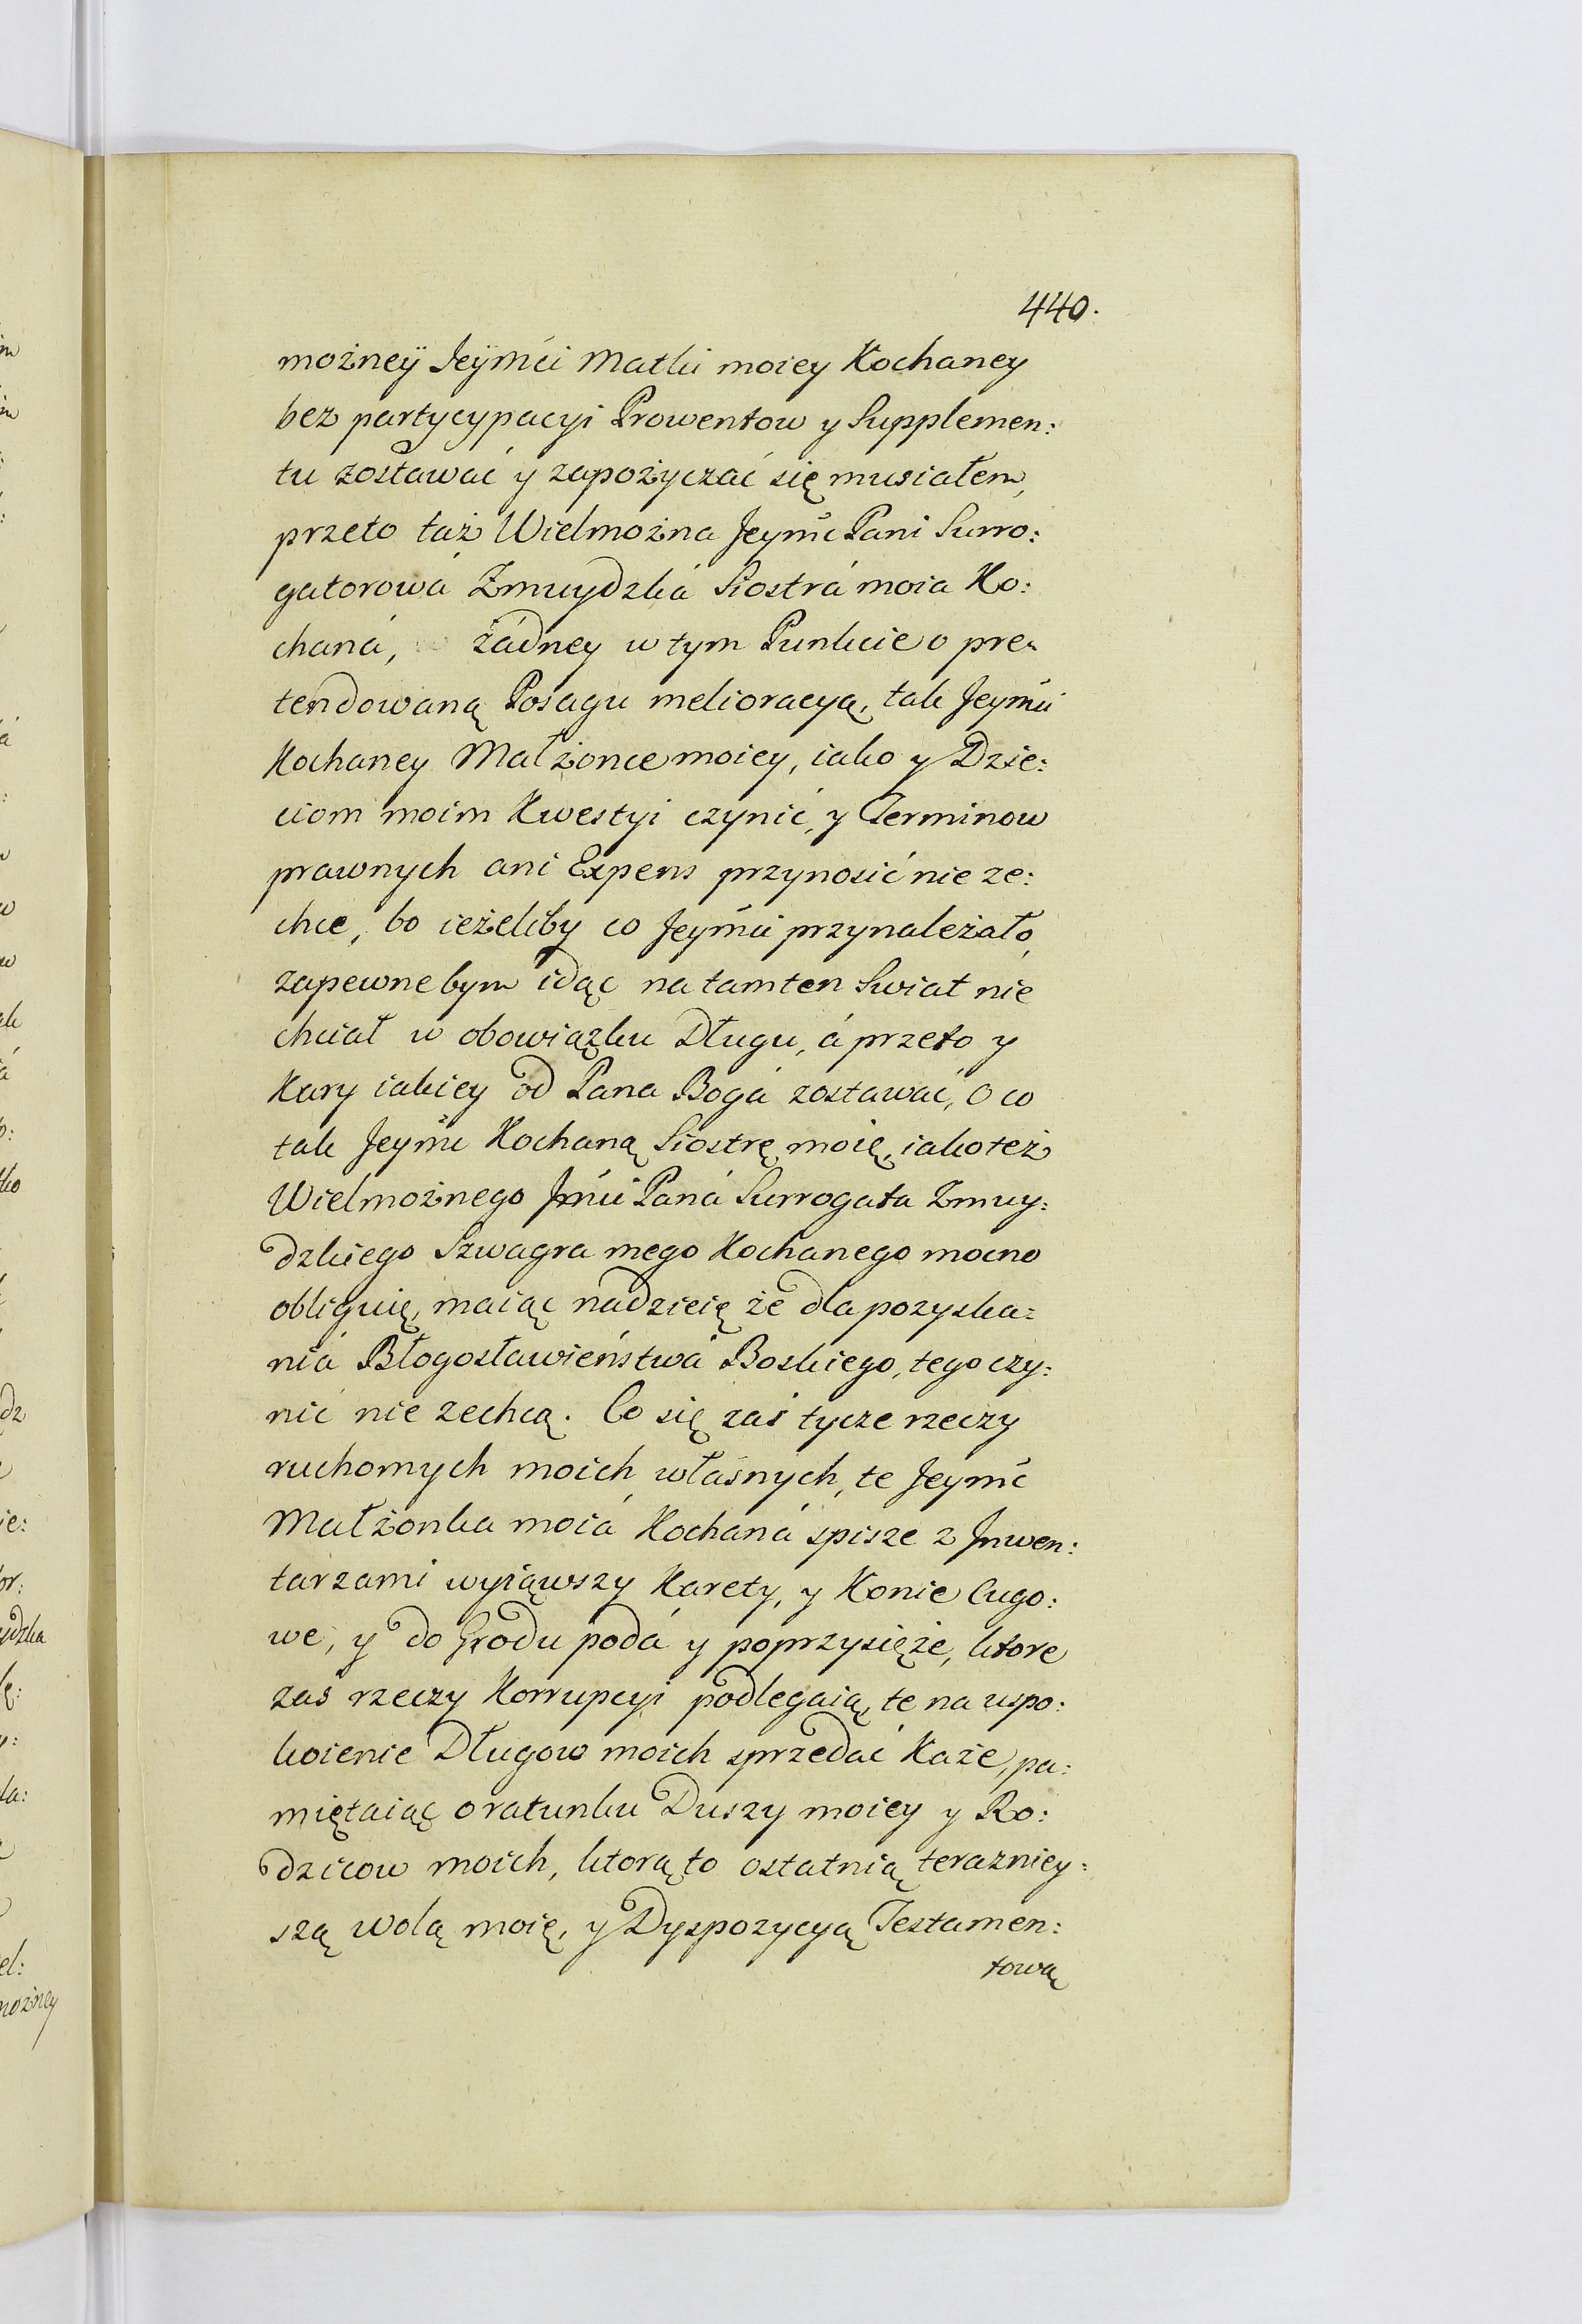 440.
możneÿ Jeÿmći Matki moiey Kochaney
bez partycypacyi Prowentow y Supplemen:
tu zostawać y zapożyczać się musiałem,
przeto taż Wielmożna Jeymć Pani Surro:
gatorowá Zmuydzká Siostrá moia Ko:
chaná, żádney w tym Punkcie o pre:
tendowaną Posagu melioracyą, tak Jeymći
Kochaney Małżonce moiey, iako y Dzie:
ciom moim Kwestyi czynić, y Terminow
prawnych ani Expens przynosić nie ze:
chce, bo ieżeliby co Jeymći przynależało,
zapewne bym idąc na tamten Swiat nie
chciał w obowiązku Długu, á przeto y
Kary iakiey od Pana Bogá zostawać, O co
tak Jeymć Kochaną Siostrę moię, iako też
Wielmożnego Jmći Paná Surrogata Zmuy:
dzkiego Szwagra mego Kochanego mocno
obliguię, maiąc nadzieię że dla pozyska:
niá Błogosławieństwá Boskiego, tego czy:
nić nie zechcą. Co się zaś tycze rzeczy
ruchomych moich własnych, te Jeymć
Małżonka moiá Kochaná spisze z Jnwen:
tarzami wyiąwszy Karety, y Konie Cugo:
we, y do Grodu podá y poprzysięże, ktore
zaś rzeczy Korrupcyi podlegaią, te na uspo:
koienie Długow moich sprzedać Każe, pa:
miętaiąc o ratunku Duszy moiey y Ro:
dzicow moich, ktorą to ostatnią teraznieу:
szą wolą moię, y Dyspozycyą Testamen:
tową